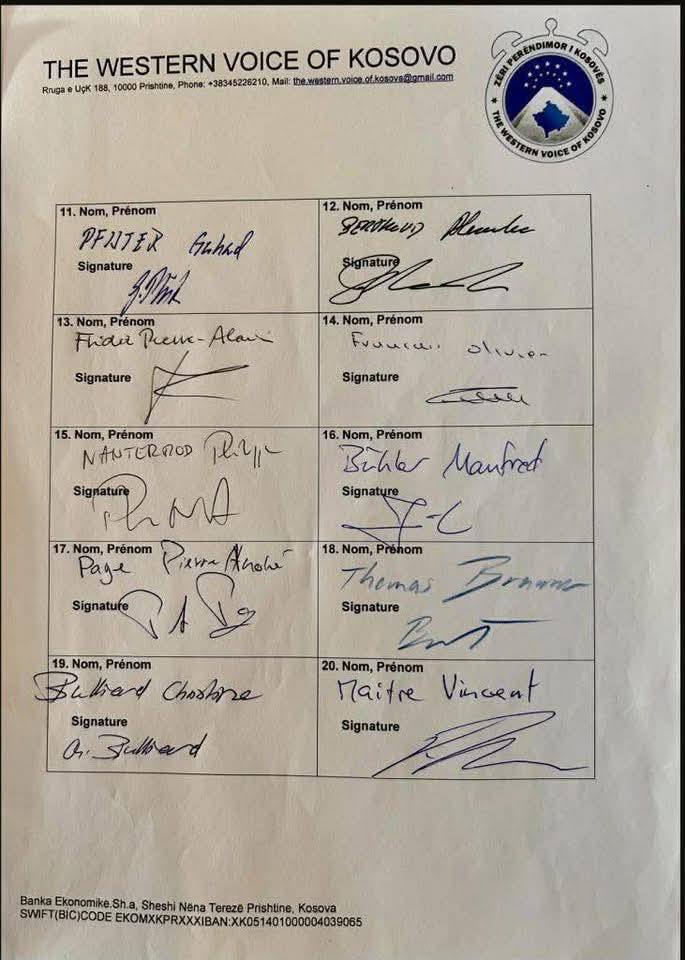 THE WESTERN VOICE OF KOSOVO
Rruga e UÇK 188, 10000 Prishtine, Phone: +38345226210, Mail: the.western.voice.of.kosova@gmail.com
ZËRI PERËNDIMOR I KOSOVËS
THE WESTERN VOICE OF KOSOVO
11. Nom, Prénom
PFISTER Gerhard
Signature
12. Nom, Prénom
Signature
13. Nom, Prénom
Fridez Pierre-Alain
Signature
14. Nom, Prénom
Français Olivier
Signature
15. Nom, Prénom
NANTERMOD Philippe
Signature
16. Nom, Prénom
Bühler Manfred
Signature
17. Nom, Prénom
Page Pierre André
Signature
18. Nom, Prénom
Thomas Brunner
Signature
19. Nom, Prénom
Bulliard Christine
Signature
C. Bulliard
20. Nom, Prénom
Maitre Vincent
Signature
Banka Ekonomike.Sh.a, Sheshi Nëna Terezë Prishtine, Kosova
SWIFT(BIC)CODE EKOMXKPRXXXIBAN:XK051401000004039065